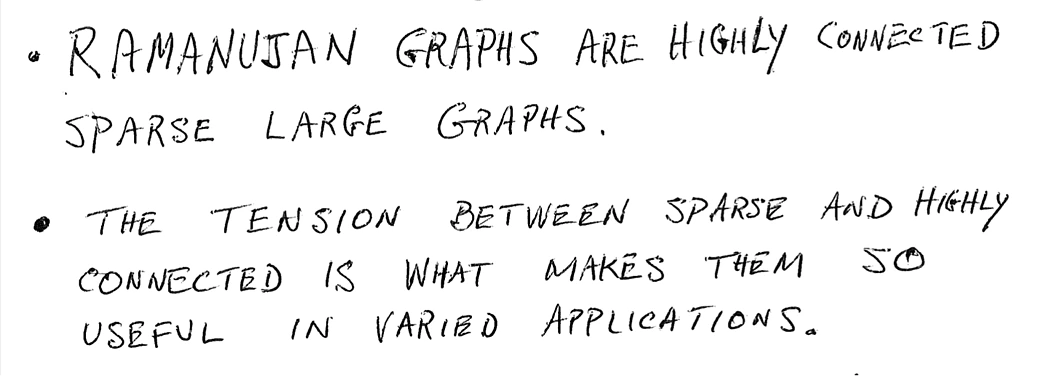 • RAMANUJAN GRAPHS ARE HIGHLY CONNECTED
SPARSE LARGE GRAPHS.
• THE TENSION BETWEEN SPARSE AND HIGHLY
CONNECTED IS WHAT MAKES THEM SO
USEFUL IN VARIED APPLICATIONS.